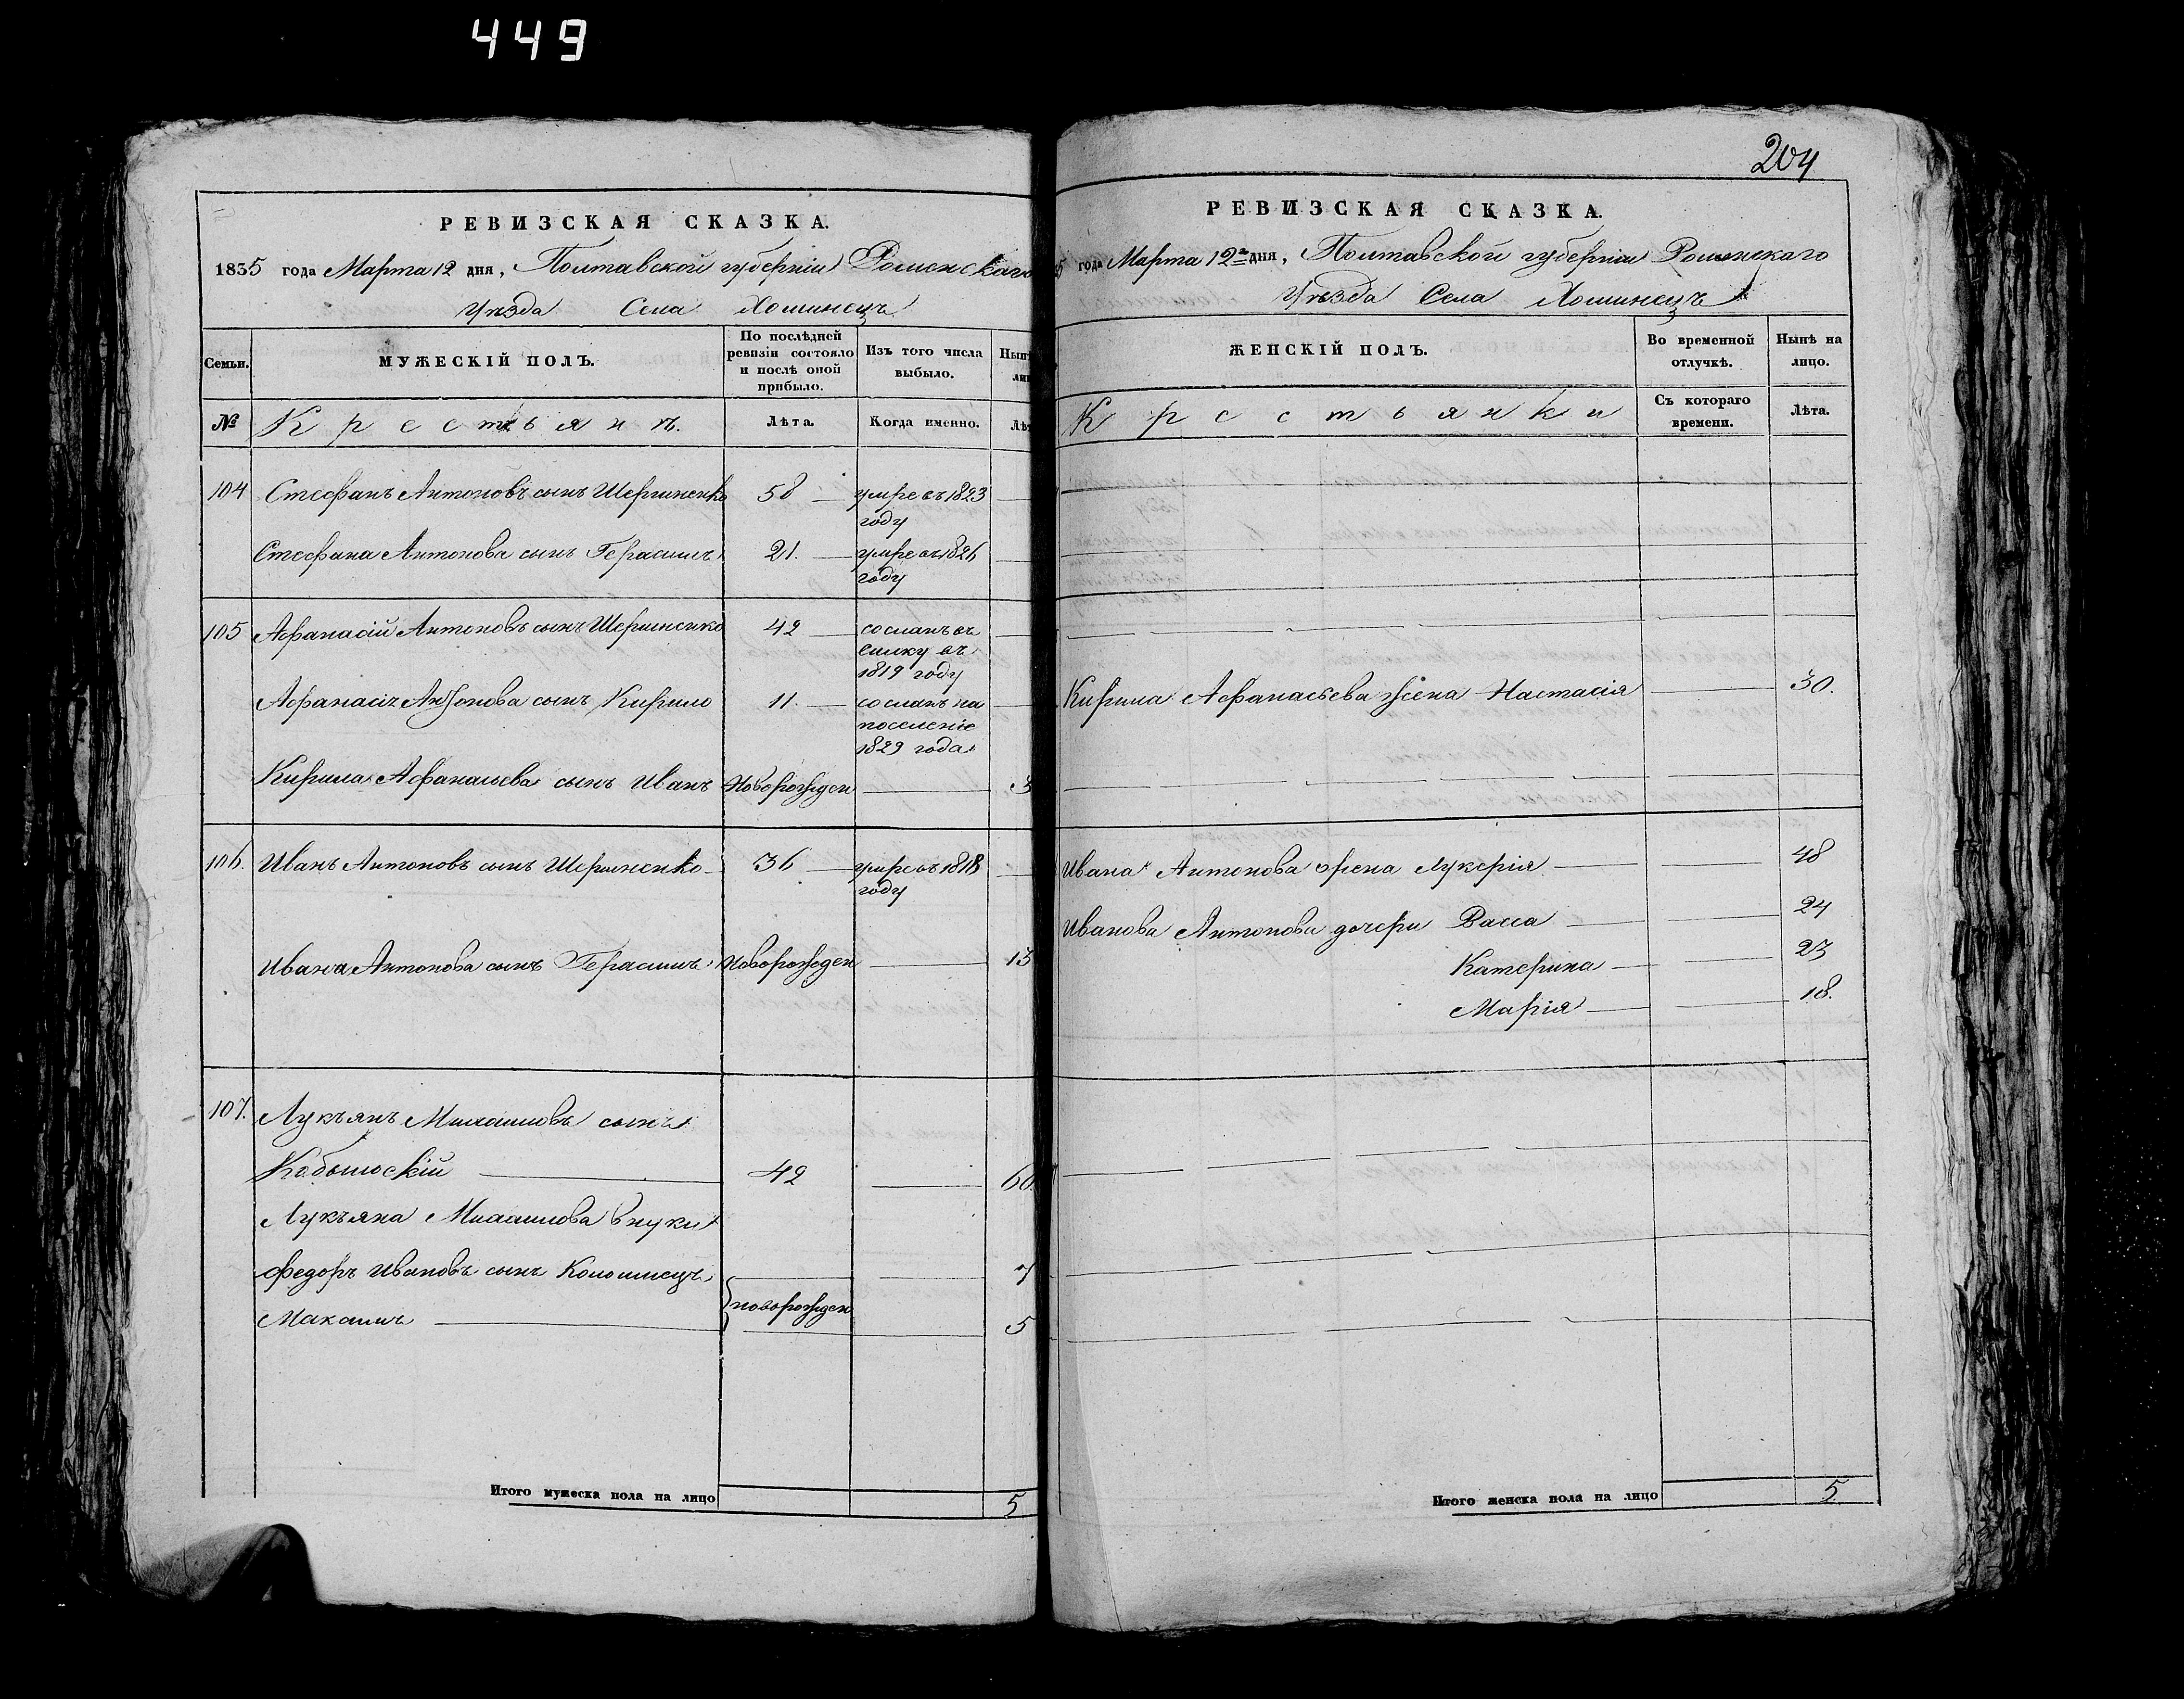 449
РЕВИЗСКАЯ СКАЗКА.
1835 года Марта 12 дня, Полтавской губерніи Роменскаго
Уѣзда Села Хоминецъ
Семьи.
МУЖЕСКІЙ ПОЛЪ.
По послѣдней ревизіи состояло и послѣ оной прибыло.
Изъ того числа выбыло.
№
Крестьянъ.
Лѣта.
Когда именно.
104 Стефанъ Антоновъ сынъ Шершненко 58 умре въ 1823
году
Стефана Антонова сынъ Герасимъ 21. умре въ 1826
году
105 Афанасій Антоновъ сынъ Шершненко 42 сосланъ въ
силку въ
1819 году
Афанасія Антонова сынъ Кирило 11. сосланъ на
поселеніе
1829 года
Кирила Афанасьева сынъ Иванъ Новорожден 3
106. Иванъ Антоновъ сынъ Шершненко 36 умре въ 1818
году
Ивана Антонова сынъ Герасимъ Новорожден 13
107. Лукъянъ Михаиловъ сынъ
Кобылскій 42 60
Лукъяна Михаилова внуки
Федоръ Ивановъ сынъ Коломіецъ 7
новорожден
Максимъ 5
Итого мужеска пола на лицо 5
204
РЕВИЗСКАЯ СКАЗКА.
5 года Марта 12го дня, Полтавской губерніи Роменскаго
Уѣзда Села Хоминецъ
ЖЕНСКІЙ ПОЛЪ.
Во временной отлучкѣ.
Нынѣ на лицо.
Крестьянки
Съ котораго времени.
Лѣта.
Кирила Афанасьева жена Настасія 30.
Ивана Антонова жена Лукерія 48
Иванова Антонови дочери Васса 24
Катерина 23
Марія 18.
Итого женска пола на лицо 5